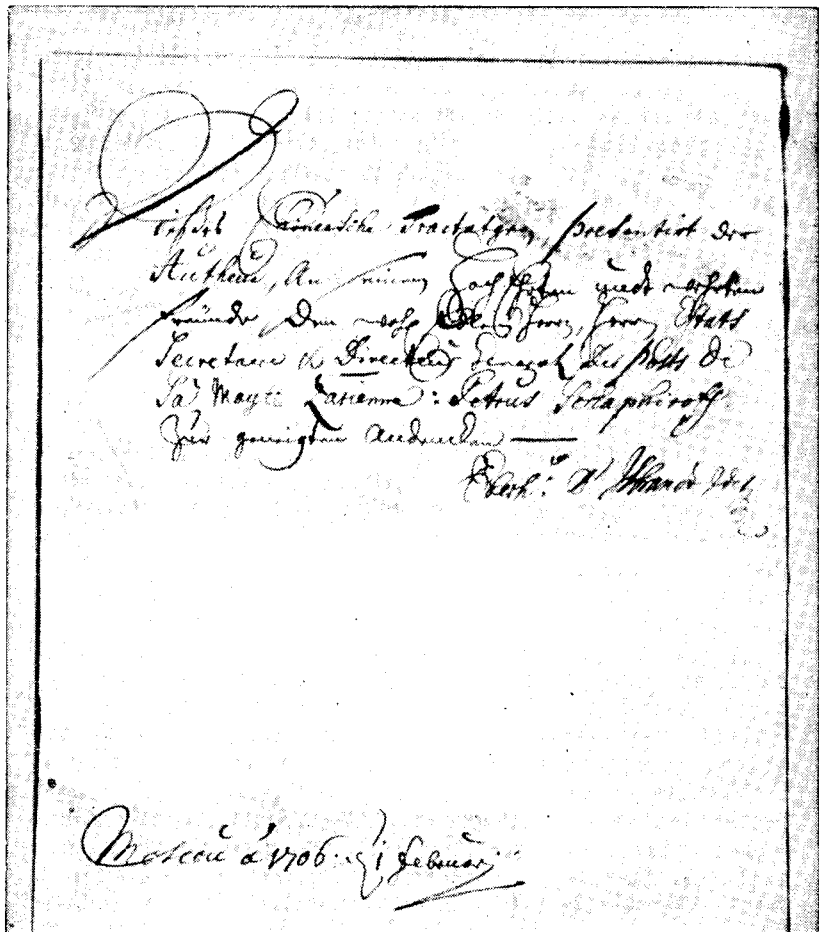 Dieses Chinesische Tractatgen, presentirt der
Autheur, An seinen Hoch Ehrten undt wehrten
freunde, Den wohl Edlen Herrn, Herrn Estats
Secretaire & Directeur General des Posts de
Sa Mayte Zarienne: Petrus Schaphiroff
Zur geneigten Andencken
Eberh:
Moscou a 1706: 1 Februarj